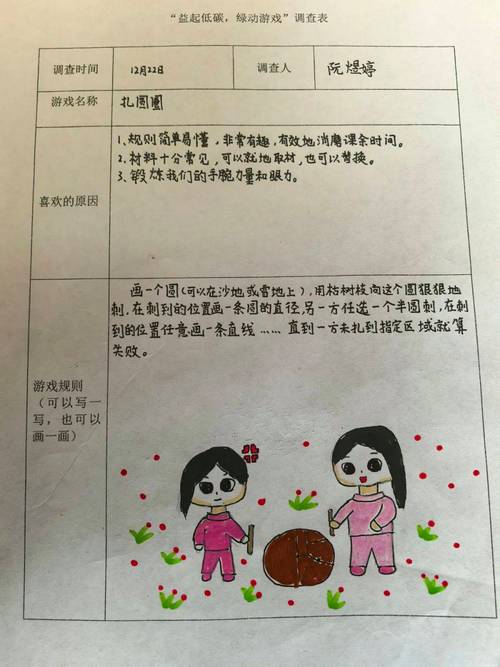 “益起低碳，绿动游戏”调查表
调查时间 12月22日 调查人 阮煜婷
游戏名称 扎圆圈
喜欢的原因
1、规则简单易懂，非常有趣，有效地消磨课余时间。
2、材料十分常见，可以就地取材，也可以替换。
3、锻炼我们的手腕力量和眼力。
游戏规则
（可以写一
写，也可以
画一画）
画一个圆(可以在沙地或雪地上)，用枯树枝向这个圆狠狠地
刺，在刺到的位置画一条圆的直径，另一方任选一个半圆刺，在刺
到的位置任意画一条直线……直到一方未扎到指定区域就算
失败。